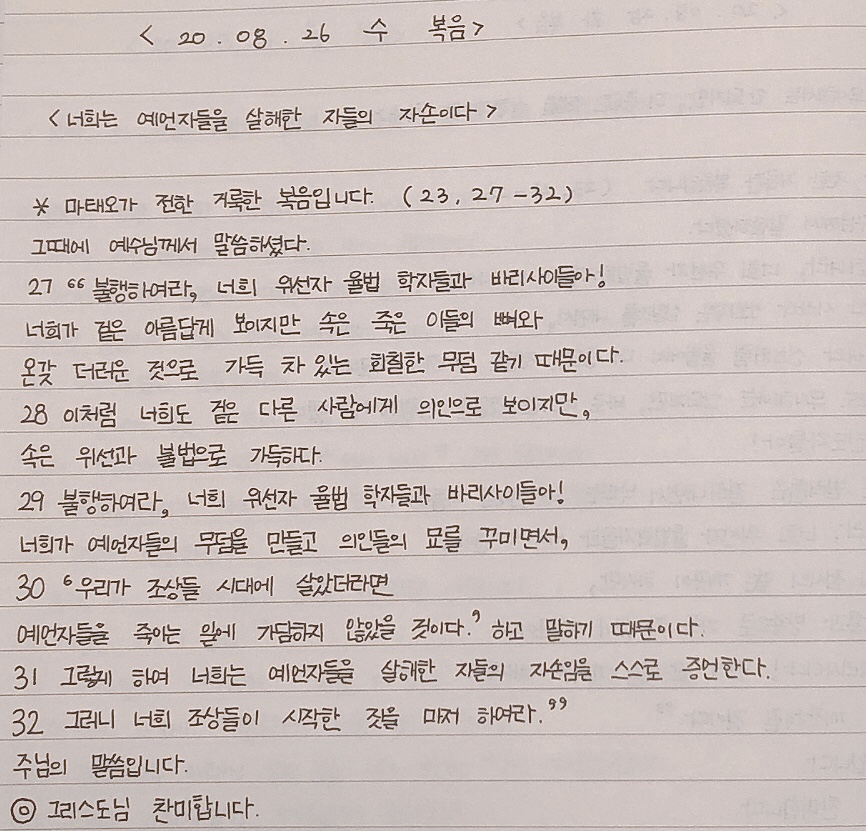 < 20. 08. 26 수 복음>
<너희는 예언자들을 살해한 자들의 자손이다>
* 마태오가 전한 거룩한 복음입니다. (23, 27-32)
그때에 예수님께서 말씀하셨다.
27 “불행하여라, 너희 위선자 율법 학자들과 바리사이들아!
너희가 겉은 아름답게 보이지만 속은 죽은 이들의 뼈와
온갖 더러운 것으로 가득 차 있는 회칠한 무덤 같기 때문이다.
28 이처럼 너희도 겉은 다른 사람에게 의인으로 보이지만,
속은 위선과 불법으로 가득하다.
29 불행하여라, 너희 위선자 율법 학자들과 바리사이들아!
너희가 예언자들의 무덤을 만들고 의인들의 묘를 꾸미면서,
30 ‘우리가 조상들 시대에 살았더라면
예언자들을 죽이는 일에 가담하지 않았을 것이다.’ 하고 말하기 때문이다.
31 그렇게 하여 너희는 예언자들을 살해한 자들의 자손임을 스스로 증언한다.
32 그러니 너희 조상들이 시작한 짓을 마저 하여라.”
주님의 말씀입니다.
◎ 그리스도님 찬미합니다.